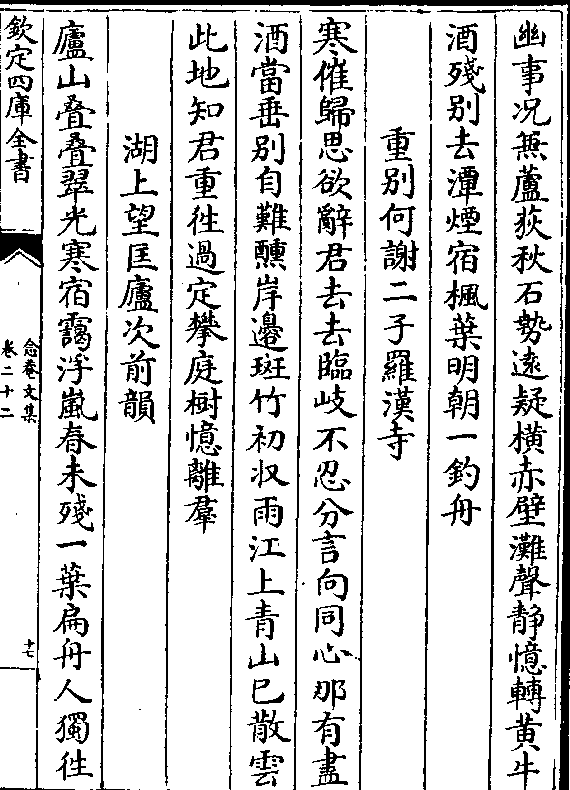 幽事况無蘆荻秋石勢逺疑横赤壁灘聲静憶轉黄牛
酒殘别去潭煙宿楓葉明朝一釣舟
重别何謝二子羅漢寺
寒催歸思欲辭君去去臨岐不忍分言向同心那有盡
酒當垂别自難醺岸邊斑竹初收雨江上青山已散雲
此地知君重徃過定攀庭樹憶離羣
湖上望匡廬次前韻
廬山叠叠翠光寒宿靄浮嵐春未殘一葉扁舟人獨徃
欽定四庫全書
念菴文集
卷二十二
十七